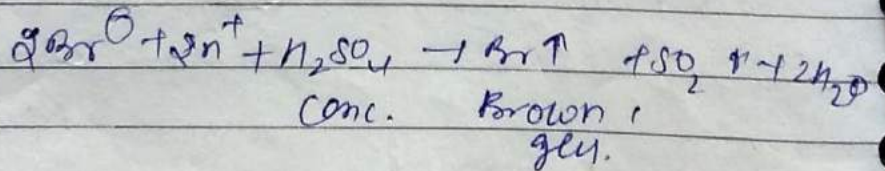 2Br⊖ + 2H⁺ + H₂SO₄ → Br↑ + SO₂↑ + 2H₂O
conc. Brown
gas.